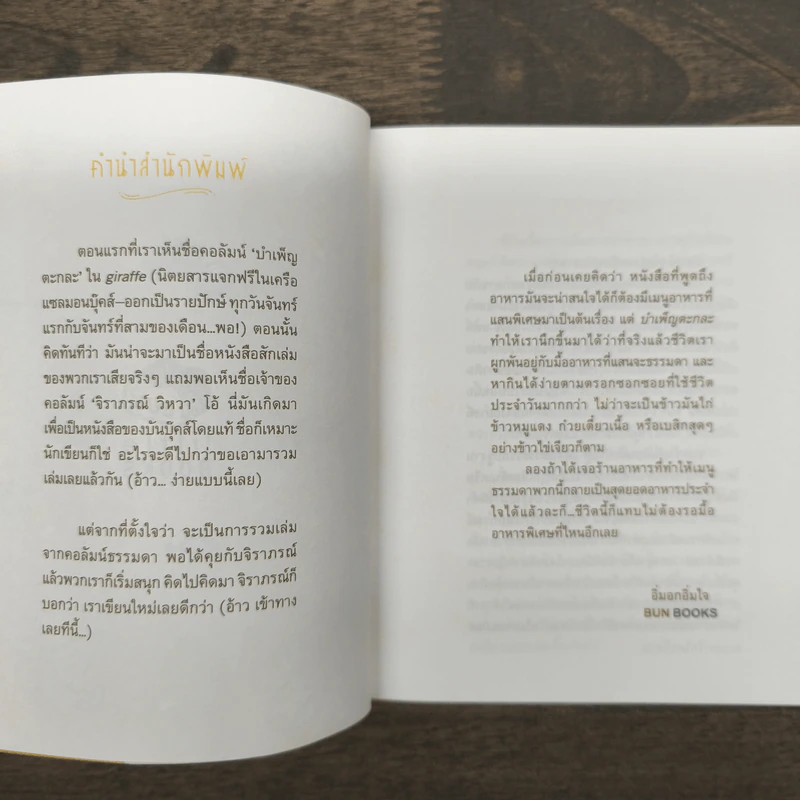 คำนำสำนักพิมพ์
ตอนแรกที่เราเห็นชื่อคอลัมน์ ‘บำเพ็ญ
ตะกละ’ ใน giraffe (นิตยสารแจกฟรีในเครือ
แซลมอนบุ๊คส์—ออกเป็นรายปักษ์ ทุกวันจันทร์
แรกกับจันทร์ที่สามของเดือน...พอ!) ตอนนั้น
คิดทันทีว่า มันน่าจะมาเป็นชื่อหนังสือสักเล่ม
ของพวกเราเสียจริงๆ แถมพอเห็นชื่อเจ้าของ
คอลัมน์ ‘จิราภรณ์ วิหวา’ โอ้ นี่มันเกิดมา
เพื่อเป็นหนังสือของบันบุ๊คส์โดยแท้ ชื่อก็เหมาะ
นักเขียนก็ใช่ อะไรจะดีไปกว่าขอเอามารวม
เล่มเลยแล้วกัน (อ้าว... ง่ายแบบนี้เลย)
แต่จากที่ตั้งใจว่า จะเป็นการรวมเล่ม
จากคอลัมน์ธรรมดา พอได้คุยกับจิราภรณ์
แล้วพวกเราก็เริ่มสนุก คิดไปคิดมา จิราภรณ์ก็
บอกว่า เราเขียนใหม่เลยดีกว่า (อ้าว เข้าทาง
เลยทีนี้...)
เมื่อก่อนเคยคิดว่า หนังสือที่พูดถึง
อาหารมันจะน่าสนใจได้ก็ต้องมีเมนูอาหารที่
แสนพิเศษมาเป็นต้นเรื่อง แต่ บำเพ็ญตะกละ
ทำให้เรานึกขึ้นมาได้ว่าที่จริงแล้วชีวิตเรา
ผูกพันอยู่กับมื้ออาหารที่แสนจะธรรมดา และ
หากินได้ง่ายตามตรอกซอกซอยที่ใช้ชีวิต
ประจำวันมากกว่า ไม่ว่าจะเป็นข้าวมันไก่
ข้าวหมูแดง ก๋วยเตี๋ยวเนื้อ หรือเบสิกสุดๆ
อย่างข้าวไข่เจียวก็ตาม
ลองถ้าได้เจอร้านอาหารที่ทำให้เมนู
ธรรมดาพวกนี้กลายเป็นสุดยอดอาหารประจำ
ใจได้แล้วละก็...ชีวิตนี้ก็แทบไม่ต้องรอมื้อ
อาหารพิเศษที่ไหนอีกเลย
อิ่มอกอิ่มใจ
BUN BOOKS